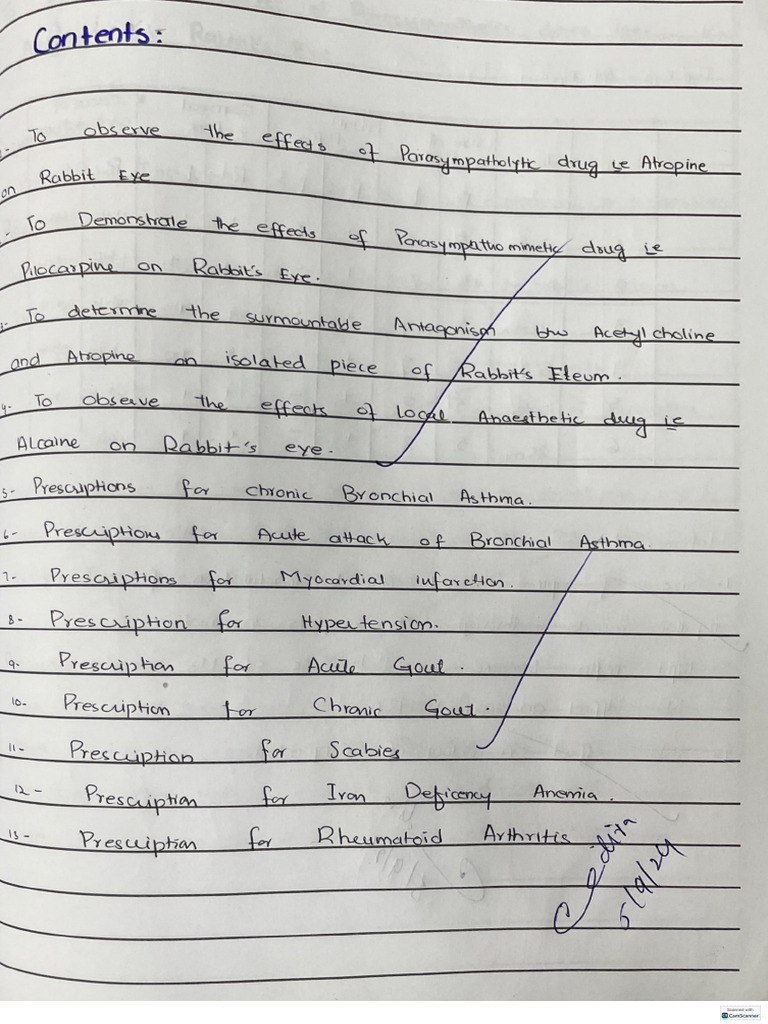 Contents:
To observe the effects of Parasympatholytic drug ie Atropine
on Rabbit Eye
To Demonstrate the effects of Parasympathomimetic drug ie
Pilocarpine on Rabbit's Eye.
3- To determine the surmountable Antagonism btw Acetylcholine
and Atropine on isolated piece of Rabbit's Ileum.
4- To observe the effects of local Anaesthetic drug ie
Alcaine on Rabbit's eye.
5- Prescriptions for chronic Bronchial Asthma.
6- Prescriptions for Acute attack of Bronchial Asthma.
7- Prescriptions for Myocardial infarction.
8- Prescription for Hypertension.
9. Prescription for Acute Gout.
10- Prescription for Chronic Gout.
11- Prescription for Scabies
12- Prescription for Iron Deficency Anemia.
13- Prescription for Rheumatoid Arthritis
5/9/24
Scanned with
CamScanner